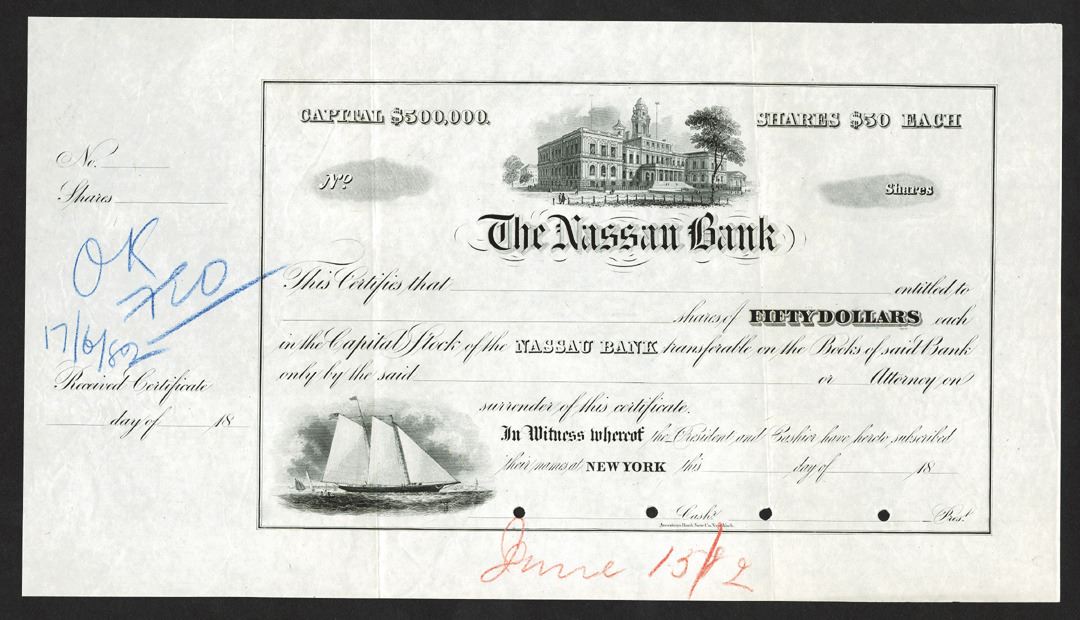 CAPITAL $500,000.
SHARES $50 EACH
No.
Shares
No
Shares
The Nassau Bank
OK
This Certifies that entitled to
shares of FIFTY DOLLARS each
17/6/82
in the Capital Stock of the NASSAU BANK transferable on the Books of said Bank
only by the said or Attorney on
Received Certificate
day of 18
surrender of this certificate.
In Witness whereof the President and Cashier have hereto subscribed
their names at NEW YORK this day of 18
Cashr. Prest.
American Bank Note Co. New York.
June 15/82